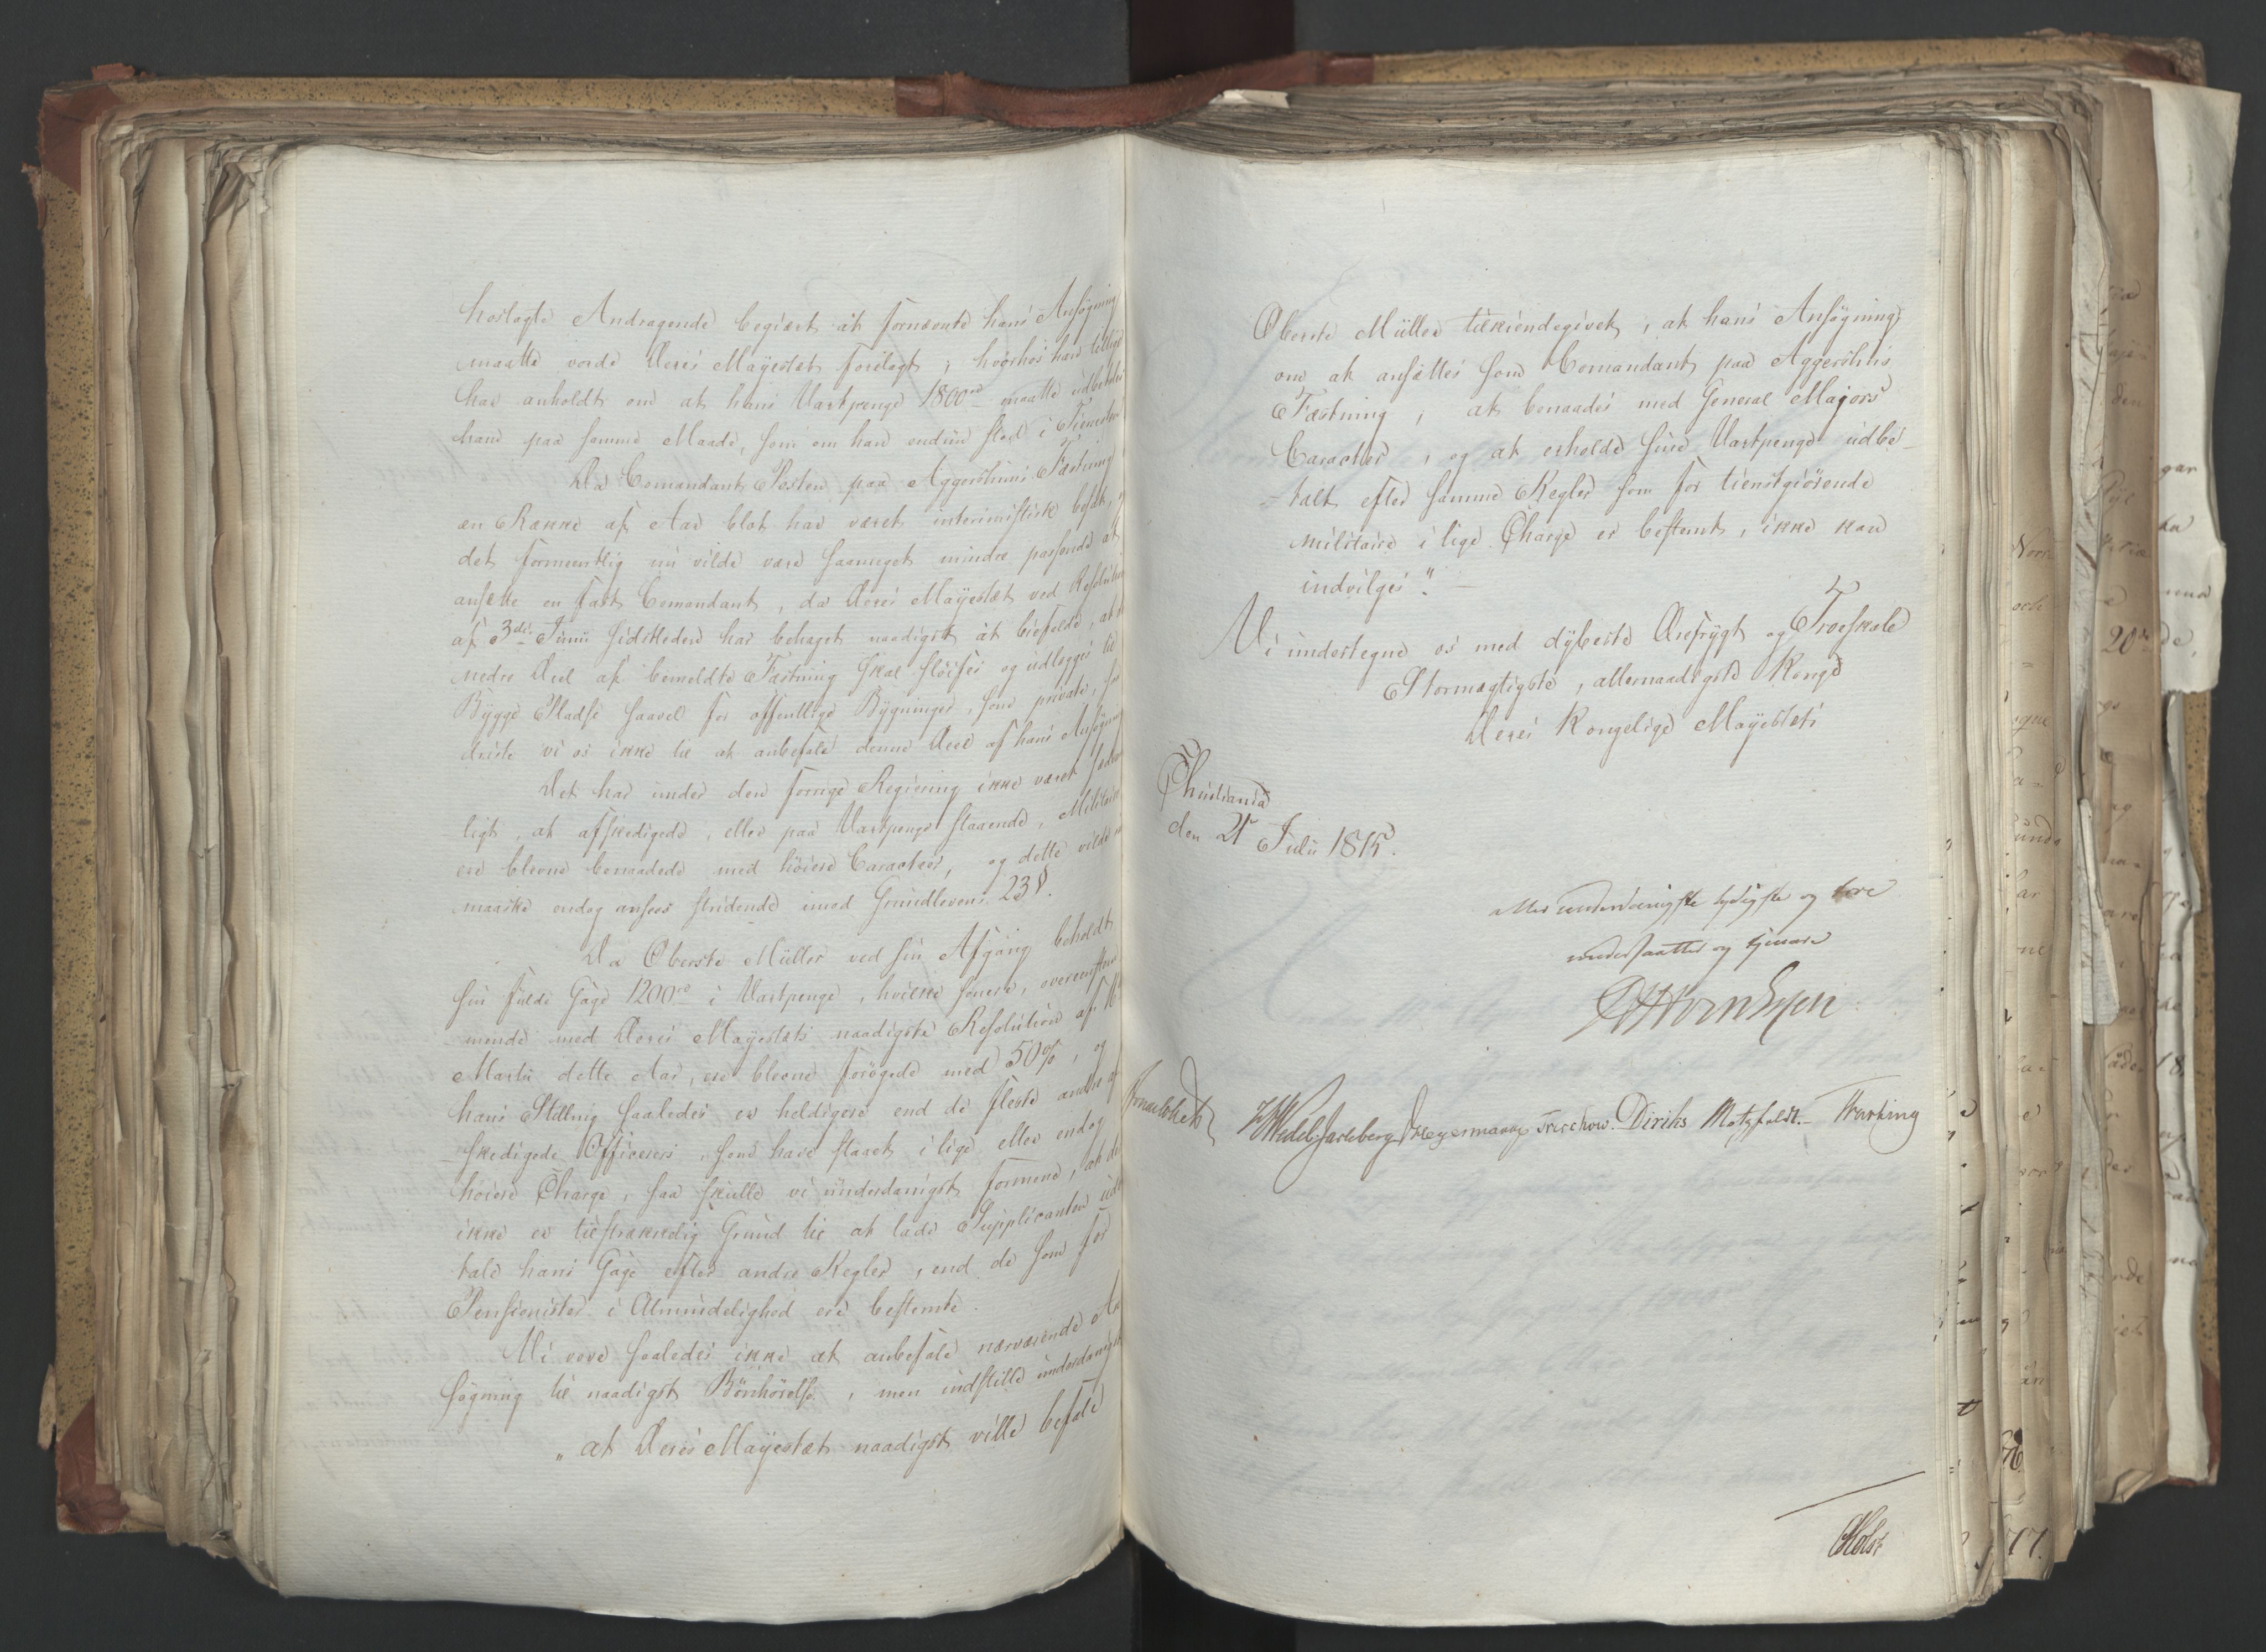 hoslagte Andragende begiært at fornævnte hans Ansøgning
maatte vorde Deres Mayestæt forelagt, hvorhos han tillige
har anholdt om at hans Vartpenge 1800rd maatte udbetales
ham paa samme Maade, som om han endnu stod i Tienesten
Da Comandant Posten paa Aggershuus Fæstning
en Række af Aar blot har været interimistisk besat,
det formeentlig nu vilde være saameget mindre passende at
ansætte en fast Comandant, da Deres Mayestæt ved Resolution
af 3die Junii sidstleden har behaget naadigst at befale, at
nedre Deel af bemeldte Fæstning skal sløifes og udlægges til
Bygge Pladse saavel for offentlige Bygninger, som private,
driste vi os ikke til at anbefale denne Deel af hans Ansøgning
Det har under den forrige Regiering ikke været sædvan
ligt, at afskedigede, eller paa Vartpenge staaende, Militaire
ere blevne benaadede med høiere Caracteer, og dette vilde
maaske endog ansees stridende imod Grundlovens 23 §.
Da Oberste Müller ved sin Afgang beholdt
sin fulde Gage 1200rd i Vartpenge, hvilke senere, overeensstem
mende med Deres Mayestæts naadigste Resolution af 16
Martii dette Aar, ere blevne forøgede med 50%, og
hans Stilling saaledes er heldigere end de fleste andre af
skedigede Officerers, som have staaet i lige eller endog
høiere Charge, saa skulle vi underdanigst formene, at der
ikke er tilstrækkelig Grund til at lade Supplicanten udbe
tale hans Gage efter andre Regler, end de som for
Pensionister i Almindelighed ere bestemte.
Vi vove saaledes ikke at anbefale nærværende An
søgning til naadigst Bønhørelse, men indstille underdanigst
"at Deres Mayestæt naadigst ville befale
Oberste Müller tilkiendegivet, at hans Ansøgning
om at ansættes som Comandant paa Aggershuus
Fæstning, at benaades med General Majors
Caracteer, og at erholde sine Vartpenge udbe-
-talt efter samme Regler som for tienstgiörende
Militaire i lige Charge er bestemt, ikke kan
indvilges".
Vi undertegne os med dybeste Ærefrygt og Troeskab
Stormægtigste, allernaadigste Konge
Deres Kongelige Mayestæts
Christiania
den 21 Julii 1815.
allerunderdanigste lydigste og troe
undersaatter og tjenere
Fornaelskett
HWedel Jarlsberg Hegermann Treschow. Diriks Motzfeldt.
Holst